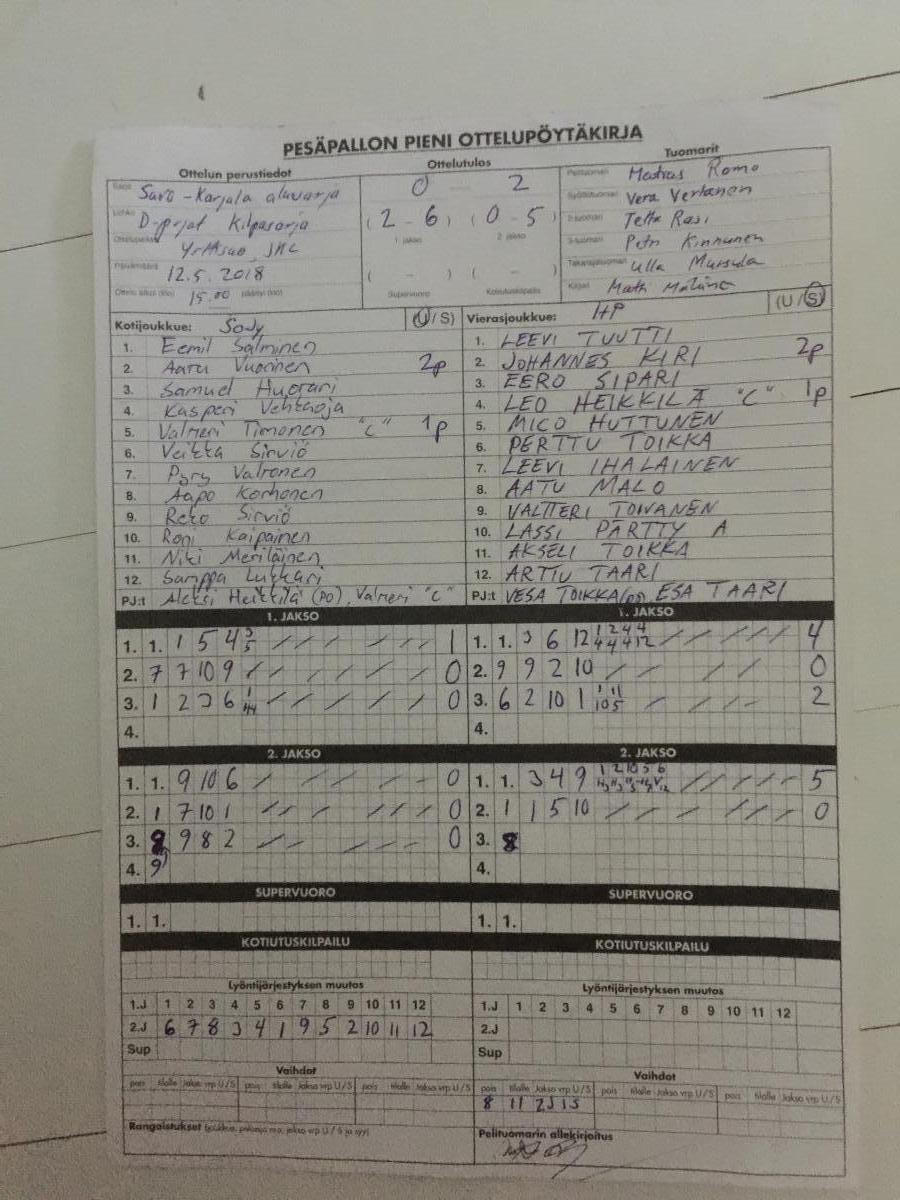 PESÄPALLON PIENI OTTELUPÖYTÄKIRJA
Ottelun perustiedot
Savo-Karjala aluesarja
D-pojat Kilpasarja
JKL
Päivämäärä 12.5.2018
15.00
Ottelutulos
0 2
(2 - 6) (0 - 5)
1 jakso 2 jakso
( - ) ( - )
Supervuoro Kotiutuskilpailu
Tuomarit
Pelituomari Matias Romo
Syöttötuomari Vera Vertanen
2-tuomari Rasi
3-tuomari Petri Kinnunen
Takarajatuomari Ulla
Kirjuri
Kotijoukkue: SoJy (U / S)
1. Eemil Salminen
2. Aaru Vuorinen 2p
3. Samuel Huorari
4. Kasperi Vehtaoja
5. Valtteri Timonen "C" 1p
6. Veikka Sirviö
7. Pyry Valtonen
8. Aapo Korhonen
9. Reko Sirviö
10. Roni Kaipainen
11. Niki Meriläinen
12. Samppa Lukkari
PJ:t Aleksi Heikkilä (PO), Valtteri "C"
Vierasjoukkue: HP (U / S)
1. LEEVI TUUTTI
2. JOHANNES KIRI 2p
3. EERO SIPARI
4. LEO HEIKKILÄ "C" 1p
5. MICO HUTTUNEN
6. PERTTU TOIKKA
7. LEEVI IHALAINEN
8. AATU MALO
9. VALTTERI TOIVANEN
10. LASSI PÄRTTYÄ
11. AKSELI TOIKKA
12. ARTTU TAARI
PJ:t VESA TOIKKA(PJ) ESA TAARI
1. JAKSO
1. 1. 1 5 4 3/5 1
2. 7 7 10 9 0
3. 1 2 3 6 0
4.
1. JAKSO
1. 1. 3 6 12 1/4 2/4 4/4 4/12 4
2. 9 9 2 10 0
3. 6 2 10 1 2
4.
2. JAKSO
1. 1. 9 10 6 0
2. 1 7 10 1 0
3. 9 9 8 2 0
4. 9
2. JAKSO
1. 1. 3 4 9 5
2. 1 1 5 10 0
3. 8
4.
SUPERVUORO
1. 1.
SUPERVUORO
1. 1.
KOTIUTUSKILPAILU
KOTIUTUSKILPAILU
Lyöntijärjestyksen muutos
1.J 1 2 3 4 5 6 7 8 9 10 11 12
2.J 6 7 8 3 4 1 9 5 2 10 11 12
Sup
Lyöntijärjestyksen muutos
1.J 1 2 3 4 5 6 7 8 9 10 11 12
2.J
Sup
Vaihdot
pois tilalle Jakso vrp U/S pois tilalle Jakso vrp U/S pois tilalle Jakso vrp U/S
Rangaistukset (joukkue, pelaaja nro, jakso vrp U / S ja syy)
Vaihdot
pois tilalle Jakso vrp U/S pois tilalle Jakso vrp U/S pois tilalle Jakso vrp U/S
8 11 2J
Pelituomarin allekirjoitus